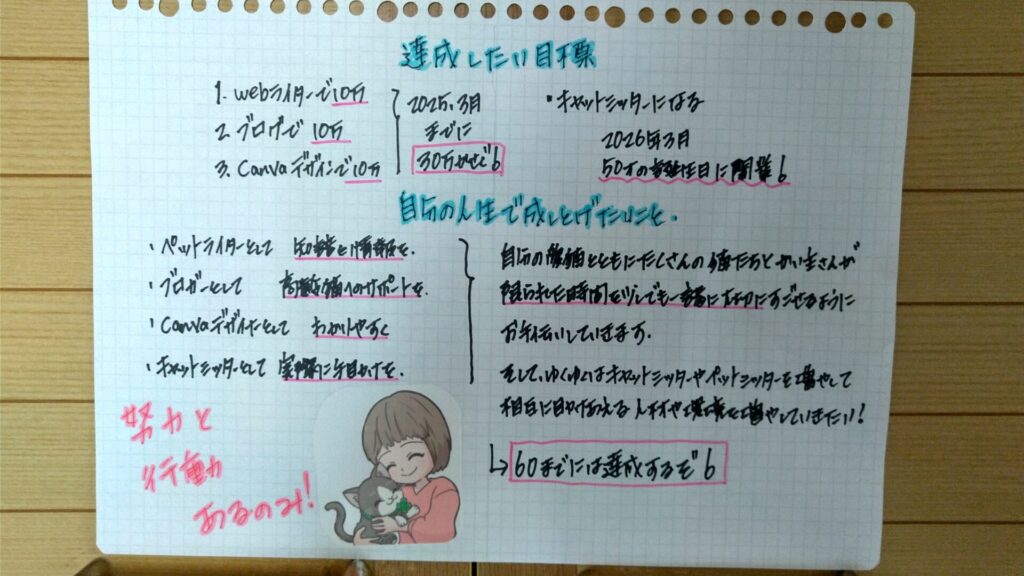 達成したい目標
1. webライターで10万
2. ブログで10万
3. Canvaデザインで10万
2025.3月
までに
30万かせぐ!
・キャットシッターになる
2026年3月
50才の誕生日に開業!
自分の人生で成しとげたいこと.
・ペットライターとして 知識と情報を.
・ブロガーとして 高齢猫へのサポートを.
・Canvaデザイナーとして わかりやすく
・キャットシッターとして 実際に手助けを.
自分の愛猫とともにたくさんの猫たちとかい主さんが
限られた時間を少しでも一緒に大切にすごせるように
お手伝いしていきます.
そして、ゆくゆくはキャットシッターやペットシッターを増やして
相互に助けあえる人材や環境を増やしていきたい!
↳ 60までには達成するぞ!
努力と
行動
あるのみ!